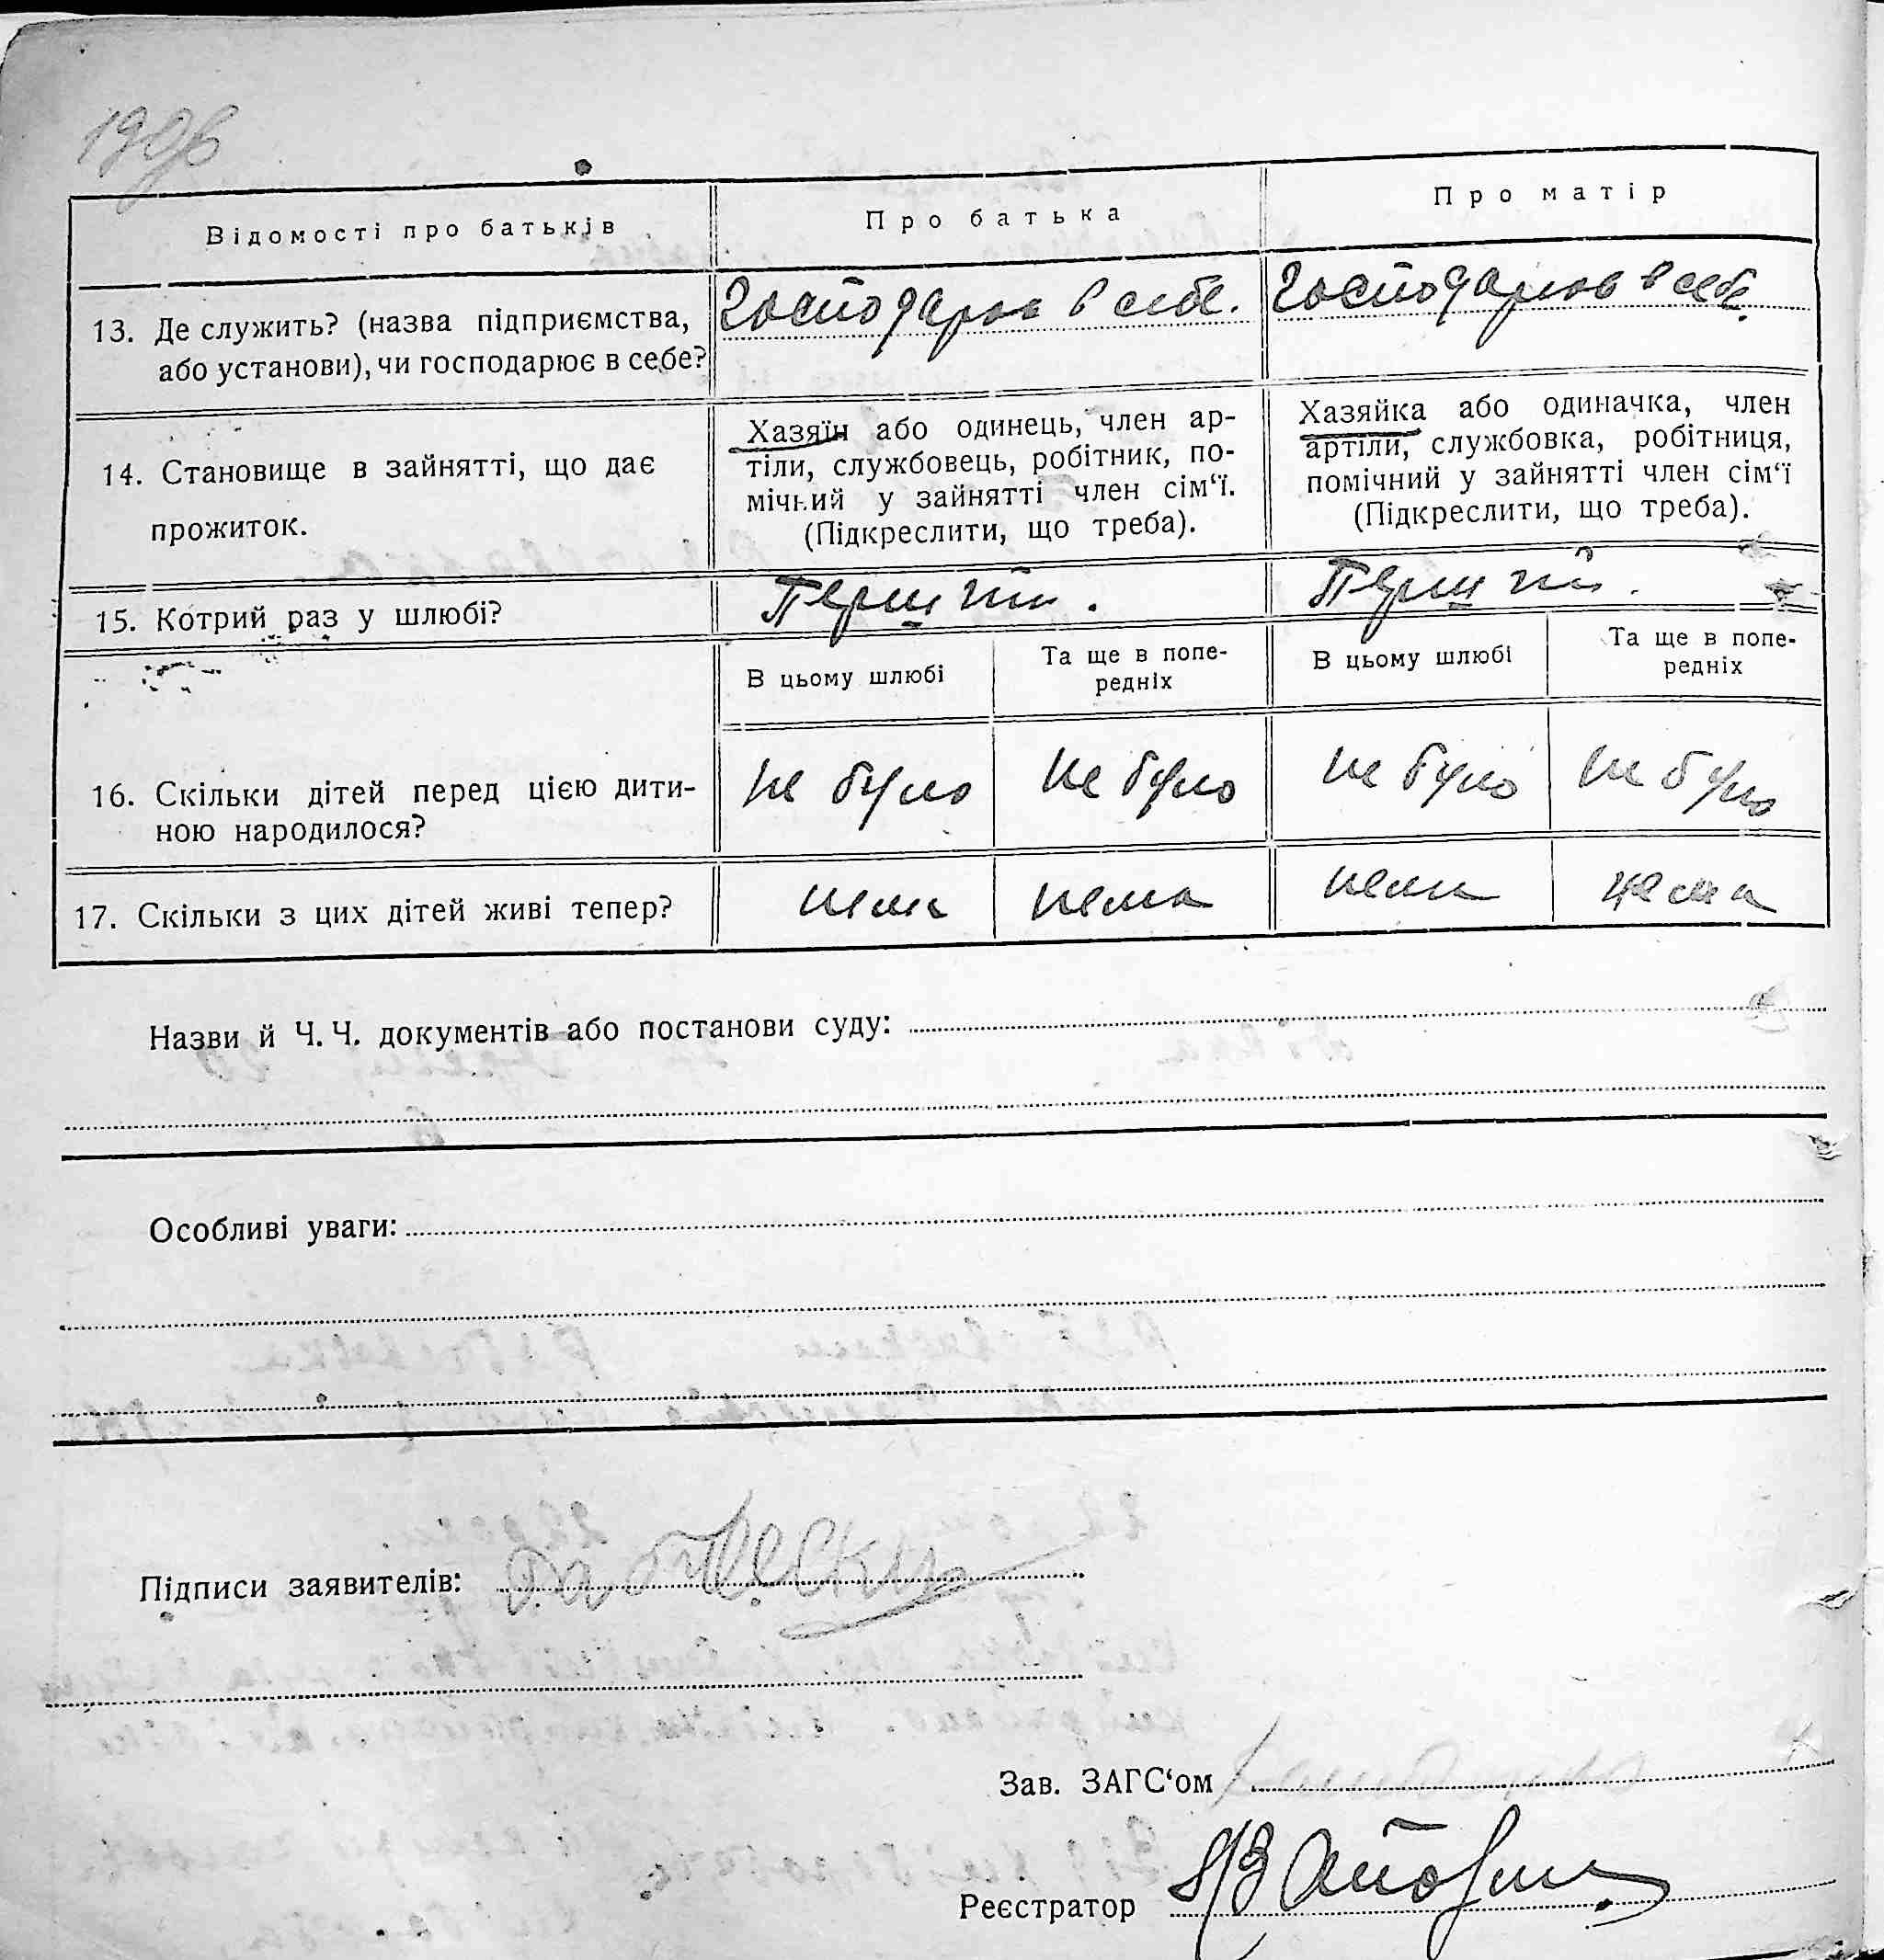 Відомості про батьків
Про батька
Про матір
13. Де служить? (назва підприємства,
або установи), чи господарює в себе?
в себе.
в себе.
14. Становище в зайнятті, що дає
прожиток.
Хазяїн або одинець, член ар-
тіли, службовець, робітник, по-
мічний у зайнятті член сім‘ї.
(Підкреслити, що треба).
Хазяйка або одиначка, член
артіли, службовка, робітниця,
помічний у зайнятті член сім‘ї
(Підкреслити, що треба).
15. Котрий раз у шлюбі?
В цьому шлюбі
Та ще в попе-
редніх
В цьому шлюбі
Та ще в попе-
редніх
16. Скільки дітей перед цією дити-
ною народилося?
не було
не було
не було
не було
17. Скільки з цих дітей живі тепер?
нема
нема
нема
нема
Назви й Ч. Ч. документів або постанови суду:
Особливі уваги:
Підписи заявителів:
Зав. ЗАГС‘ом
Реєстратор